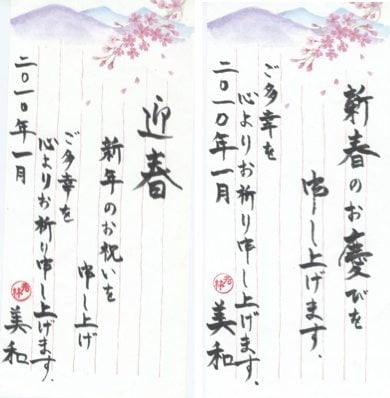 迎春
新年のお祝いを
申し上げ
ご多幸を
心よりお祈り申し上げます。
二〇一〇年一月
美和
新春のお慶びを
申し上げます。
ご多幸を
心よりお祈り申し上げます。
二〇一〇年一月
美和